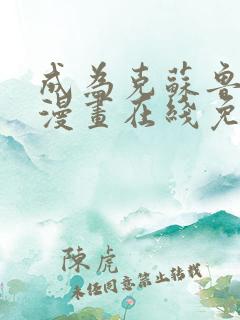 成為克蘇魯
漫畫在綫免
陳虎
未經同意禁止轉載